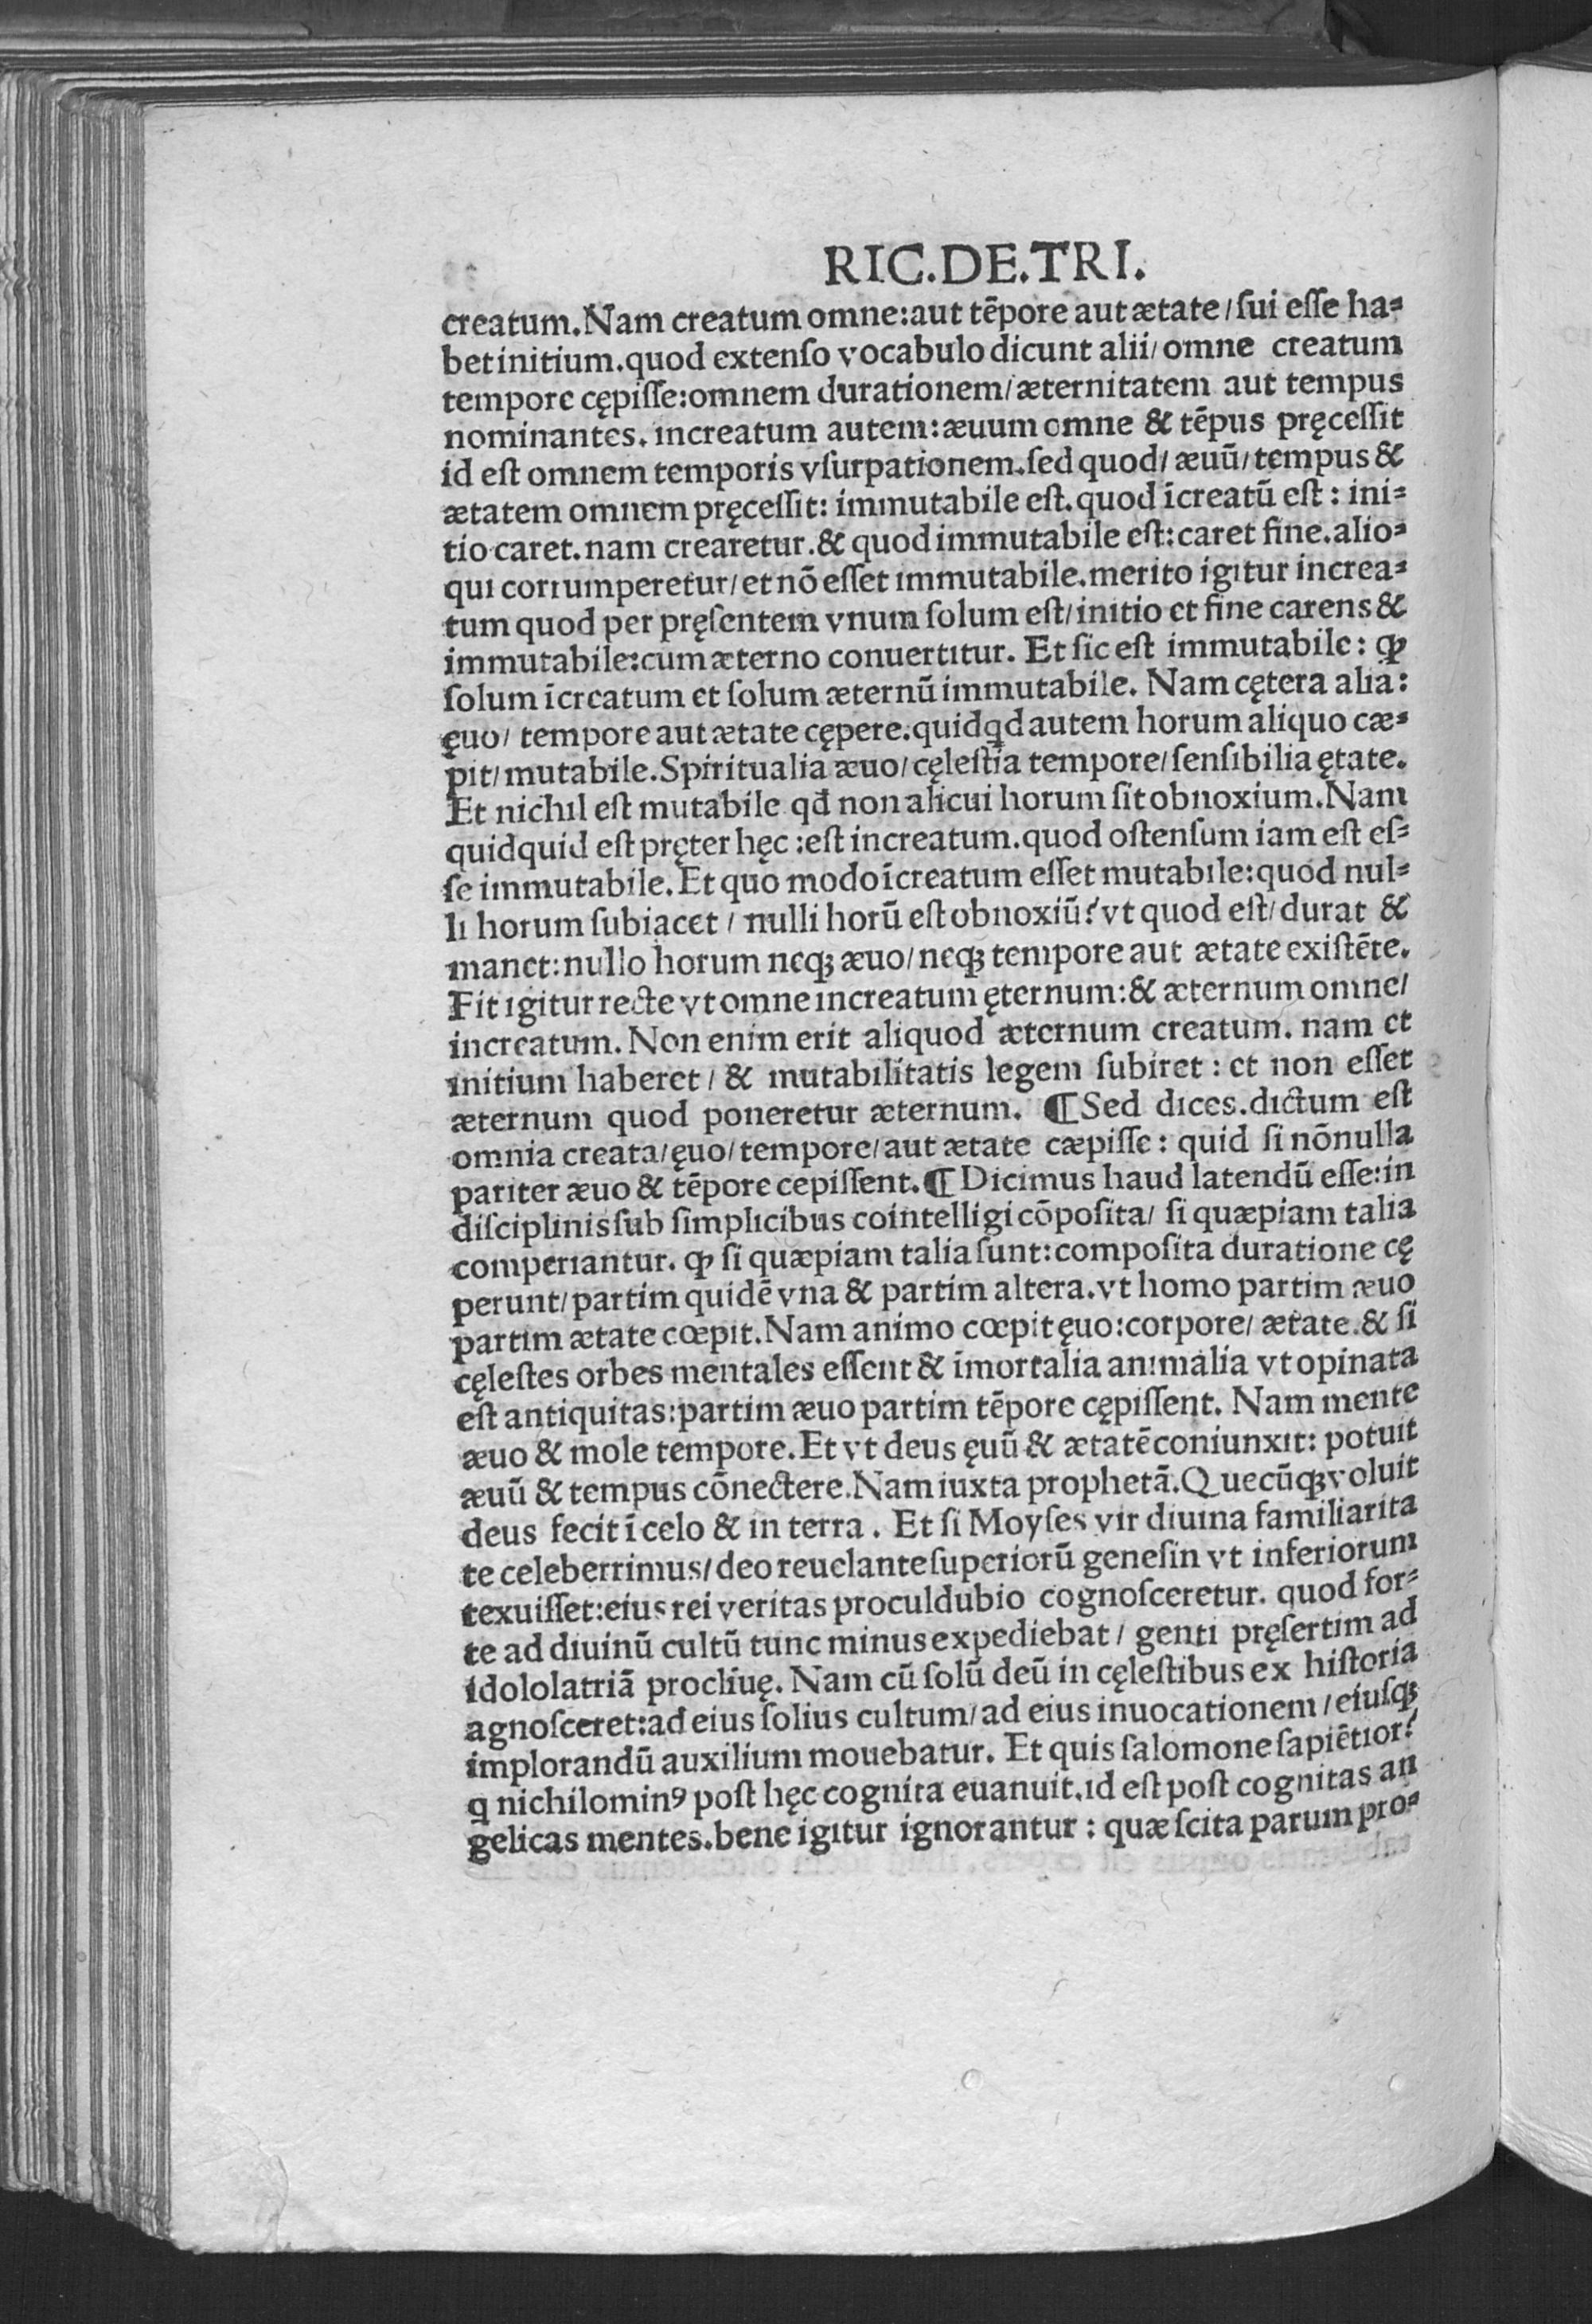 RIC.DE.TRI.
creatum.Nam creatum omne:aut tēpore aut ætate/sui esse ha=
bet initium.quod extenso vocabulo dicunt alii/omne creatum
tempore cępisse:omnem durationem/æternitatem aut tempus
nominantes. increatum autem:æuum omne & tēpus pręcessit
id est omnem temporis vsurpationem.sed quod/ æuū/tempus &
ætatem omnem pręcessit: immutabile est.quod īcreatū est: ini=
tio caret.nam crearetur.& quod immutabile est:caret fine.alio=
qui corrumperetur/et nō esset immutabile.merito igitur increa=
tum quod per pręsentem vnum solum est/initio et fine carens &
immutabile:cum æterno conuertitur. Et sic est immutabile: ꝙ
solum īcreatum et solum æternū immutabile. Nam cętera alia:
ęuo/ tempore aut ætate cępere.quidꝗd autem horum aliquo cæ=
pit/mutabile.Spiritualia æuo/cęlestia tempore/sensibilia ętate.
Et nichil est mutabile qd̄ non alicui horum sit obnoxium.Nam
quidquid est pręter hęc:est increatum.quod ostensum iam est es=
se immutabile.Et quo modo īcreatum esset mutabile:quod nul=
li horum subiacet/ nulli horū est obnoxiū?vt quod est/durat &
manet:nullo horum neqꝫ æuo/neqꝫ tempore aut ætate existēte.
Fit igitur recte vt omne increatum ęternum:& æternum omne/
increatum. Non enim erit aliquod æternum creatum. nam et
initium haberet/ & mutabilitatis legem subiret: et non esset
æternum quod poneretur æternum. ¶Sed dices.dictum est
omnia creata/ęuo/tempore/aut ætate cæpisse: quid si nōnulla
pariter æuo & tēpore cepissent.¶Dicimus haud latendū esse:in
disciplinis sub simplicibus cointelligi cōposita/ si quæpiam talia
comperiantur. ꝙ si quæpiam talia sunt:composita duratione cę
perunt/partim quidē vna & partim altera.vt homo partim æuo
partim ætate cœpit.Nam animo cœpit ęuo:corpore/ ætate.& si
cęlestes orbes mentales essent & īmortalia animalia vt opinata
est antiquitas:partim æuo partim tēpore cępissent. Nam mente
æuo & mole tempore.Et vt deus ęuū & ætatē coniunxit: potuit
æuū & tempus cōnectere.Nam iuxta prophetā.Quecūqꝫ voluit
deus fecit ī celo & in terra. Et si Moyses vir diuina familiarita
te celeberrimus/deo reuelante superiorū genesin vt inferiorum
texuisset:eius rei veritas proculdubio cognosceretur. quod for=
te ad diuinū cultū tunc minus expediebat/ genti pręsertim ad
idololatriā procliuę. Nam cū solū deū in cęlestibus ex historia
agnosceret:ad eius solius cultum/ad eius inuocationem/eiusqꝫ
implorandū auxilium mouebatur. Et quis salomone sapiētior?
q nichilominꝰ post hęc cognita euanuit.id est post cognitas an
gelicas mentes.bene igitur ignorantur: quæ scita parum pro=